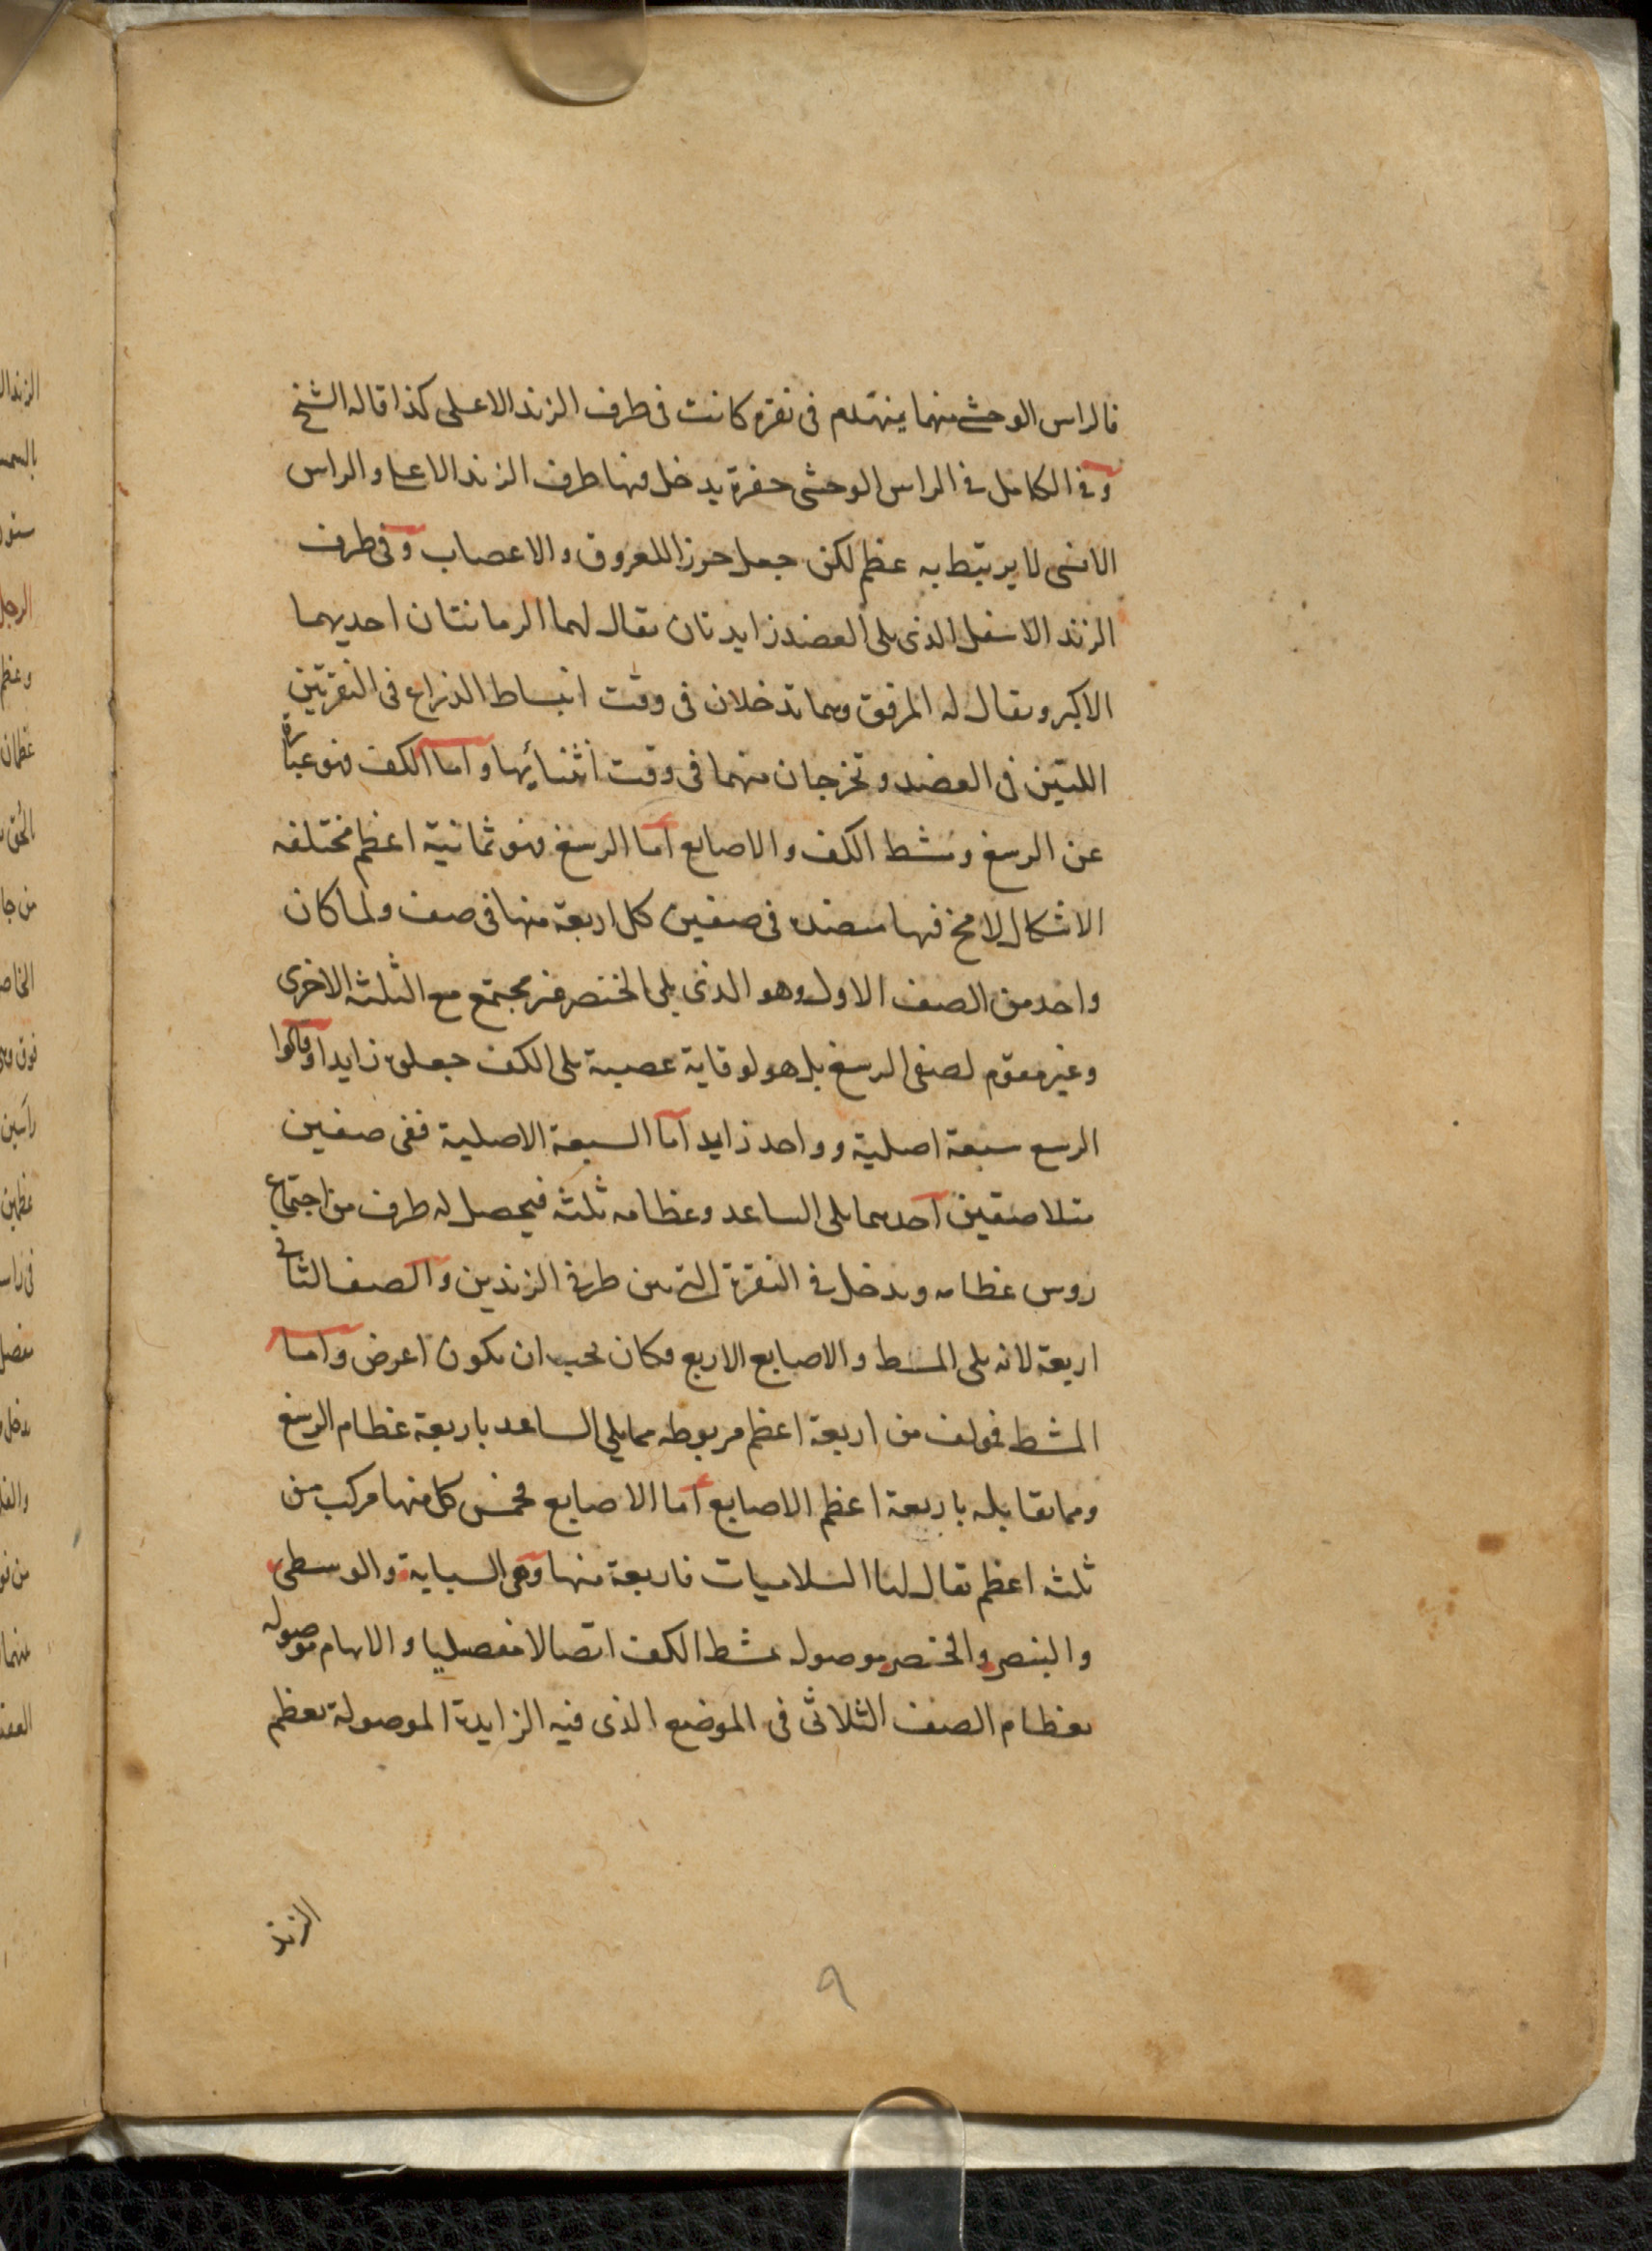 فالراس الوحشى منهما ينهدم فى نقرة كانت فى طرف الزند الاعلى كذا قاله الشيخ
وفى الكامل فى الراس الوحشى حفرة يدخل فيها طرف الزند الاعلى والراس
الانسى لا يرتبط به عظم لكن جعل حرزا للعروق والاعصاب وفى طرف
الزند الاسفل الذى يلى العضد زايدتان يقال لهما الرمانتان احديهما
الاكبر ويقال له المرفق وهما تدخلان فى وقت انبساط الذراع فى النقرتين
اللتين فى العضد وتخرجان منهما فى وقت انثنائها واما الكف فهو عبارة
عن الرسغ ومشط الكف والاصابع اما الرسغ فهو ثمانية اعظم مختلفه
الاشكال لا مخ فيها منضدة فى صفين كل اربعة منها فى صف ولما كان
واحد من الصف الاول وهو الذى يلى الخنصر غير مجتمع مع الثلثه الاخرى
وغير مقوم لصفى الرسغ بل هو لوقاية عصبية يلى الكف جعلوه زايدا وقالوا
الرسع سبعة اصلية وواحد زايد اما السبعة الاصلية ففى صفين
متلاصقين احدهما يلى الساعد وعظامه ثلثه فيحصل له طرف من اجتماع
روس عظامه ويدخل فى النقرة التى بين طرفى الزندين والصف الثانى
اربعة لانه يلى المشط والاصابع الاربع فكان يجب ان يكون اعرض واما
المشط فمولف من اربعة اعظم مربوطه مما يلى الساعد باربعة عظام الرسغ
ومما يقابله باربعة اعظم الاصابع اما الاصابع فخمس كل منها مركب من
ثلثه اعظم يقال لها السلاميات فاربعة منها وهى السبابة والوسطى
والبنصر والخنصر موصوله بمشط الكف اتصالا مفصليا والابهام موصوله
بعظام الصف الثلاثى فى الموضع الذى فيه الزايدة الموصولة بعظم
الزند
٩